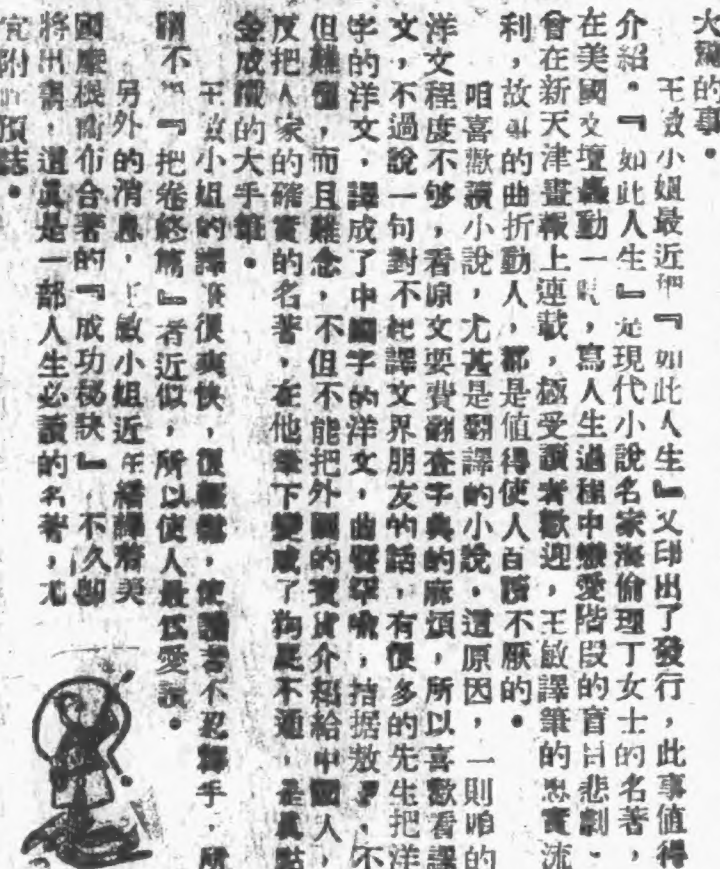 火爐的事。
王敏小姐最近把『如此人生』又印出了發行，此事值得
介紹。『如此人生』是現代小說名家海倫理丁女士的名著，
在美國文壇轟動一時，寫人生過程中戀愛階段的盲目悲劇，
曾在新天津畫報上連載，極受讀者歡迎，王敏譯筆的忠實流
利，故事的曲折動人，都是值得使人百讀不厭的。
咱喜歡讀小說，尤甚是翻譯的小說。這原因，一則咱的
洋文程度不够，看原文要費翻查字典的麻煩，所以喜歡看譯
文，不過說一句對不起譯文界朋友的話，有很多的先生把洋
字的洋文，譯成了中國字的洋文，曲譬罕喻，拮据敖牙，不
但難懂，而且難念，不但不能把外國的寶貨介紹給中國人，
反把人家的確實的名著，在他筆下變成了狗屁不通，是真點
金成鐵的大手筆。
王敏小姐的譯 很爽快，很 ，使讀者不忍釋手，
謂不 『把卷終篇』者近似，所以使人最低愛讀。
另外的消息，王敏小姐近在繙譯着美
國 合著的『成功秘訣』，不久卽
將出書，這眞是一部人生必讀的名著，尤
宜附 預誌。